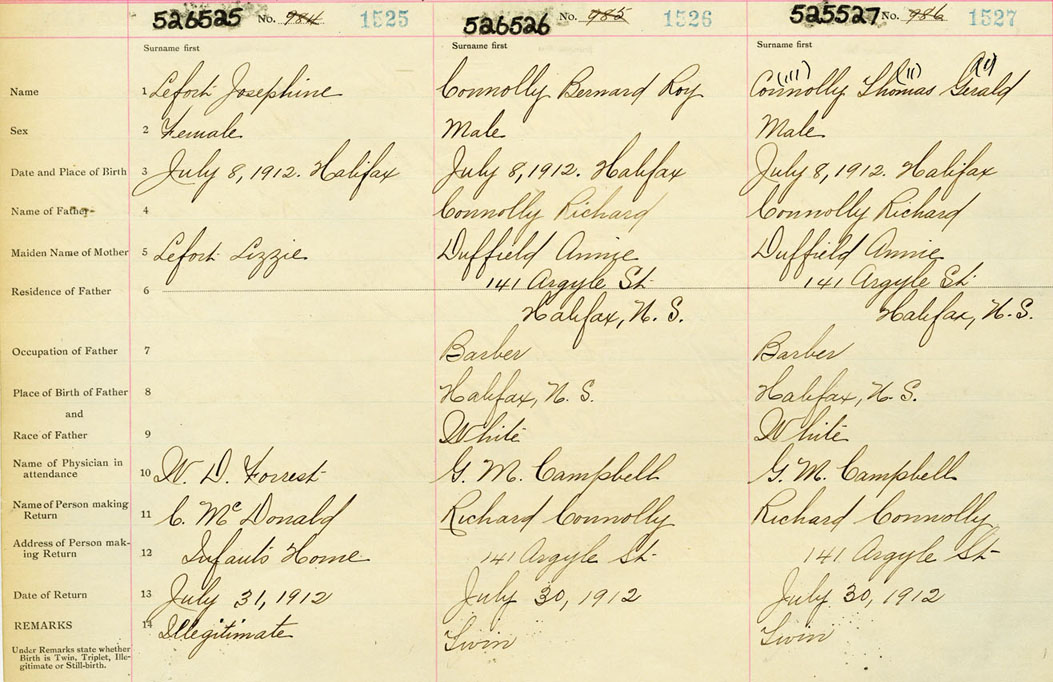 526525 No. 984 1525 526526 No. 985 1526 525527 No. 986 1527
Surname first Surname first Surname first
Name 1 Lefort Josephine Connolly Bernard Roy Connolly (111) Thomas (11) Gerald (1)
Sex 2 Female Male Male
Date and Place of Birth 3 July 8, 1912. Halifax July 8, 1912. Halifax July 8, 1912. Halifax
Name of Father 4 Connolly Richard Connolly Richard
Maiden Name of Mother 5 Lefort Lizzie Duffield Annie Duffield Annie
Residence of Father 6 141 Argyle St. 141 Argyle St
Halifax, N. S. Halifax, N. S.
Occupation of Father 7 Barber Barber
Place of Birth of Father 8 Halifax, N. S. Halifax, N. S.
and
Race of Father 9 White White
Name of Physician in
attendance 10 W. D. Forrest G. M. Campbell G. M. Campbell
Name of Person making
Return 11 C. McDonald Richard Connolly Richard Connolly
Address of Person mak-
ing Return 12 Infants Home 141 Argyle St 141 Argyle St
Date of Return 13 July 31, 1912 July 30, 1912 July 30, 1912
REMARKS 14 Illegitimate Twin Twin
Under Remarks state whether
Birth is Twin, Triplet, Ille-
gitimate or Still-birth.